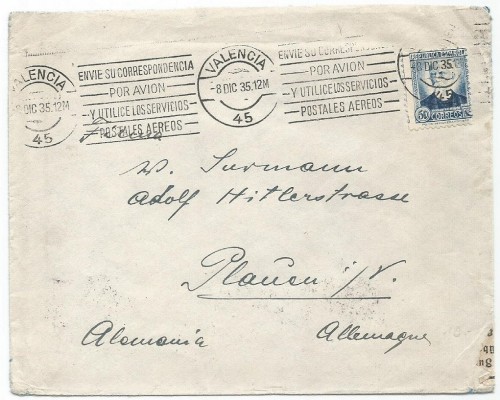 VALENCIA
8 DIC 35.12M
45
ENVIE SU CORRESPONDENCIA
POR AVION
Y UTILICE LOS SERVICIOS
POSTALES AEREOS
VALENCIA
-8 DIC 35.12M
45
ENVIE SU CORRESPONDENCIA
POR AVION
Y UTILICE LOS SERVICIOS
POSTALES AEREOS
DIC 35.12
45
REPUBLICA ESPAÑOLA
50 CORREOS
W. Surmann
Adolf Hitlerstrasse
Plauen i/V.
Alemania Allemagne